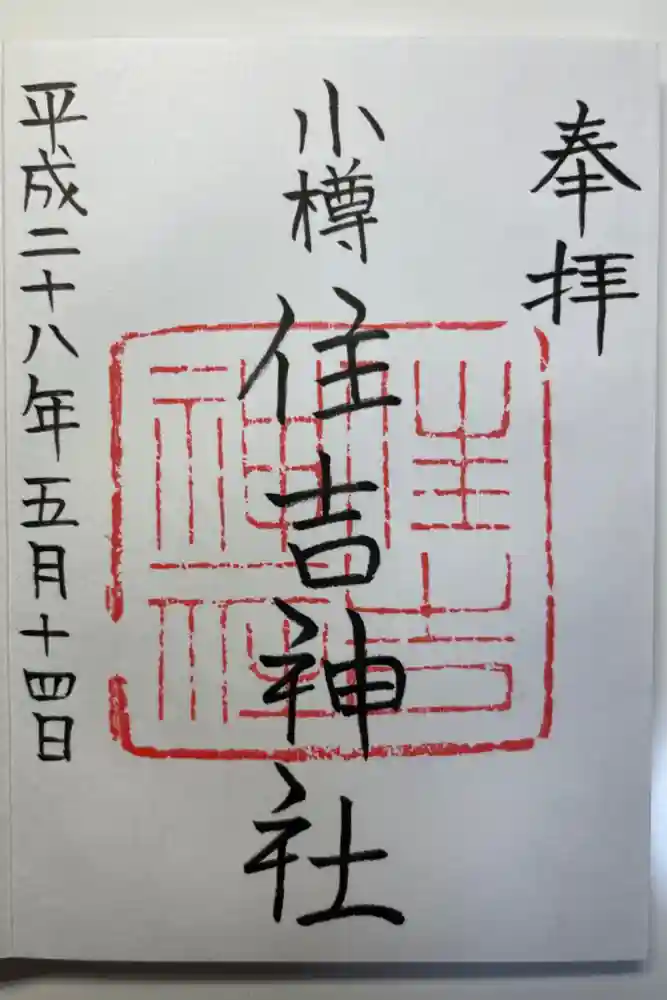 奉拝
小樽
住吉神社
平成二十八年五月十四日